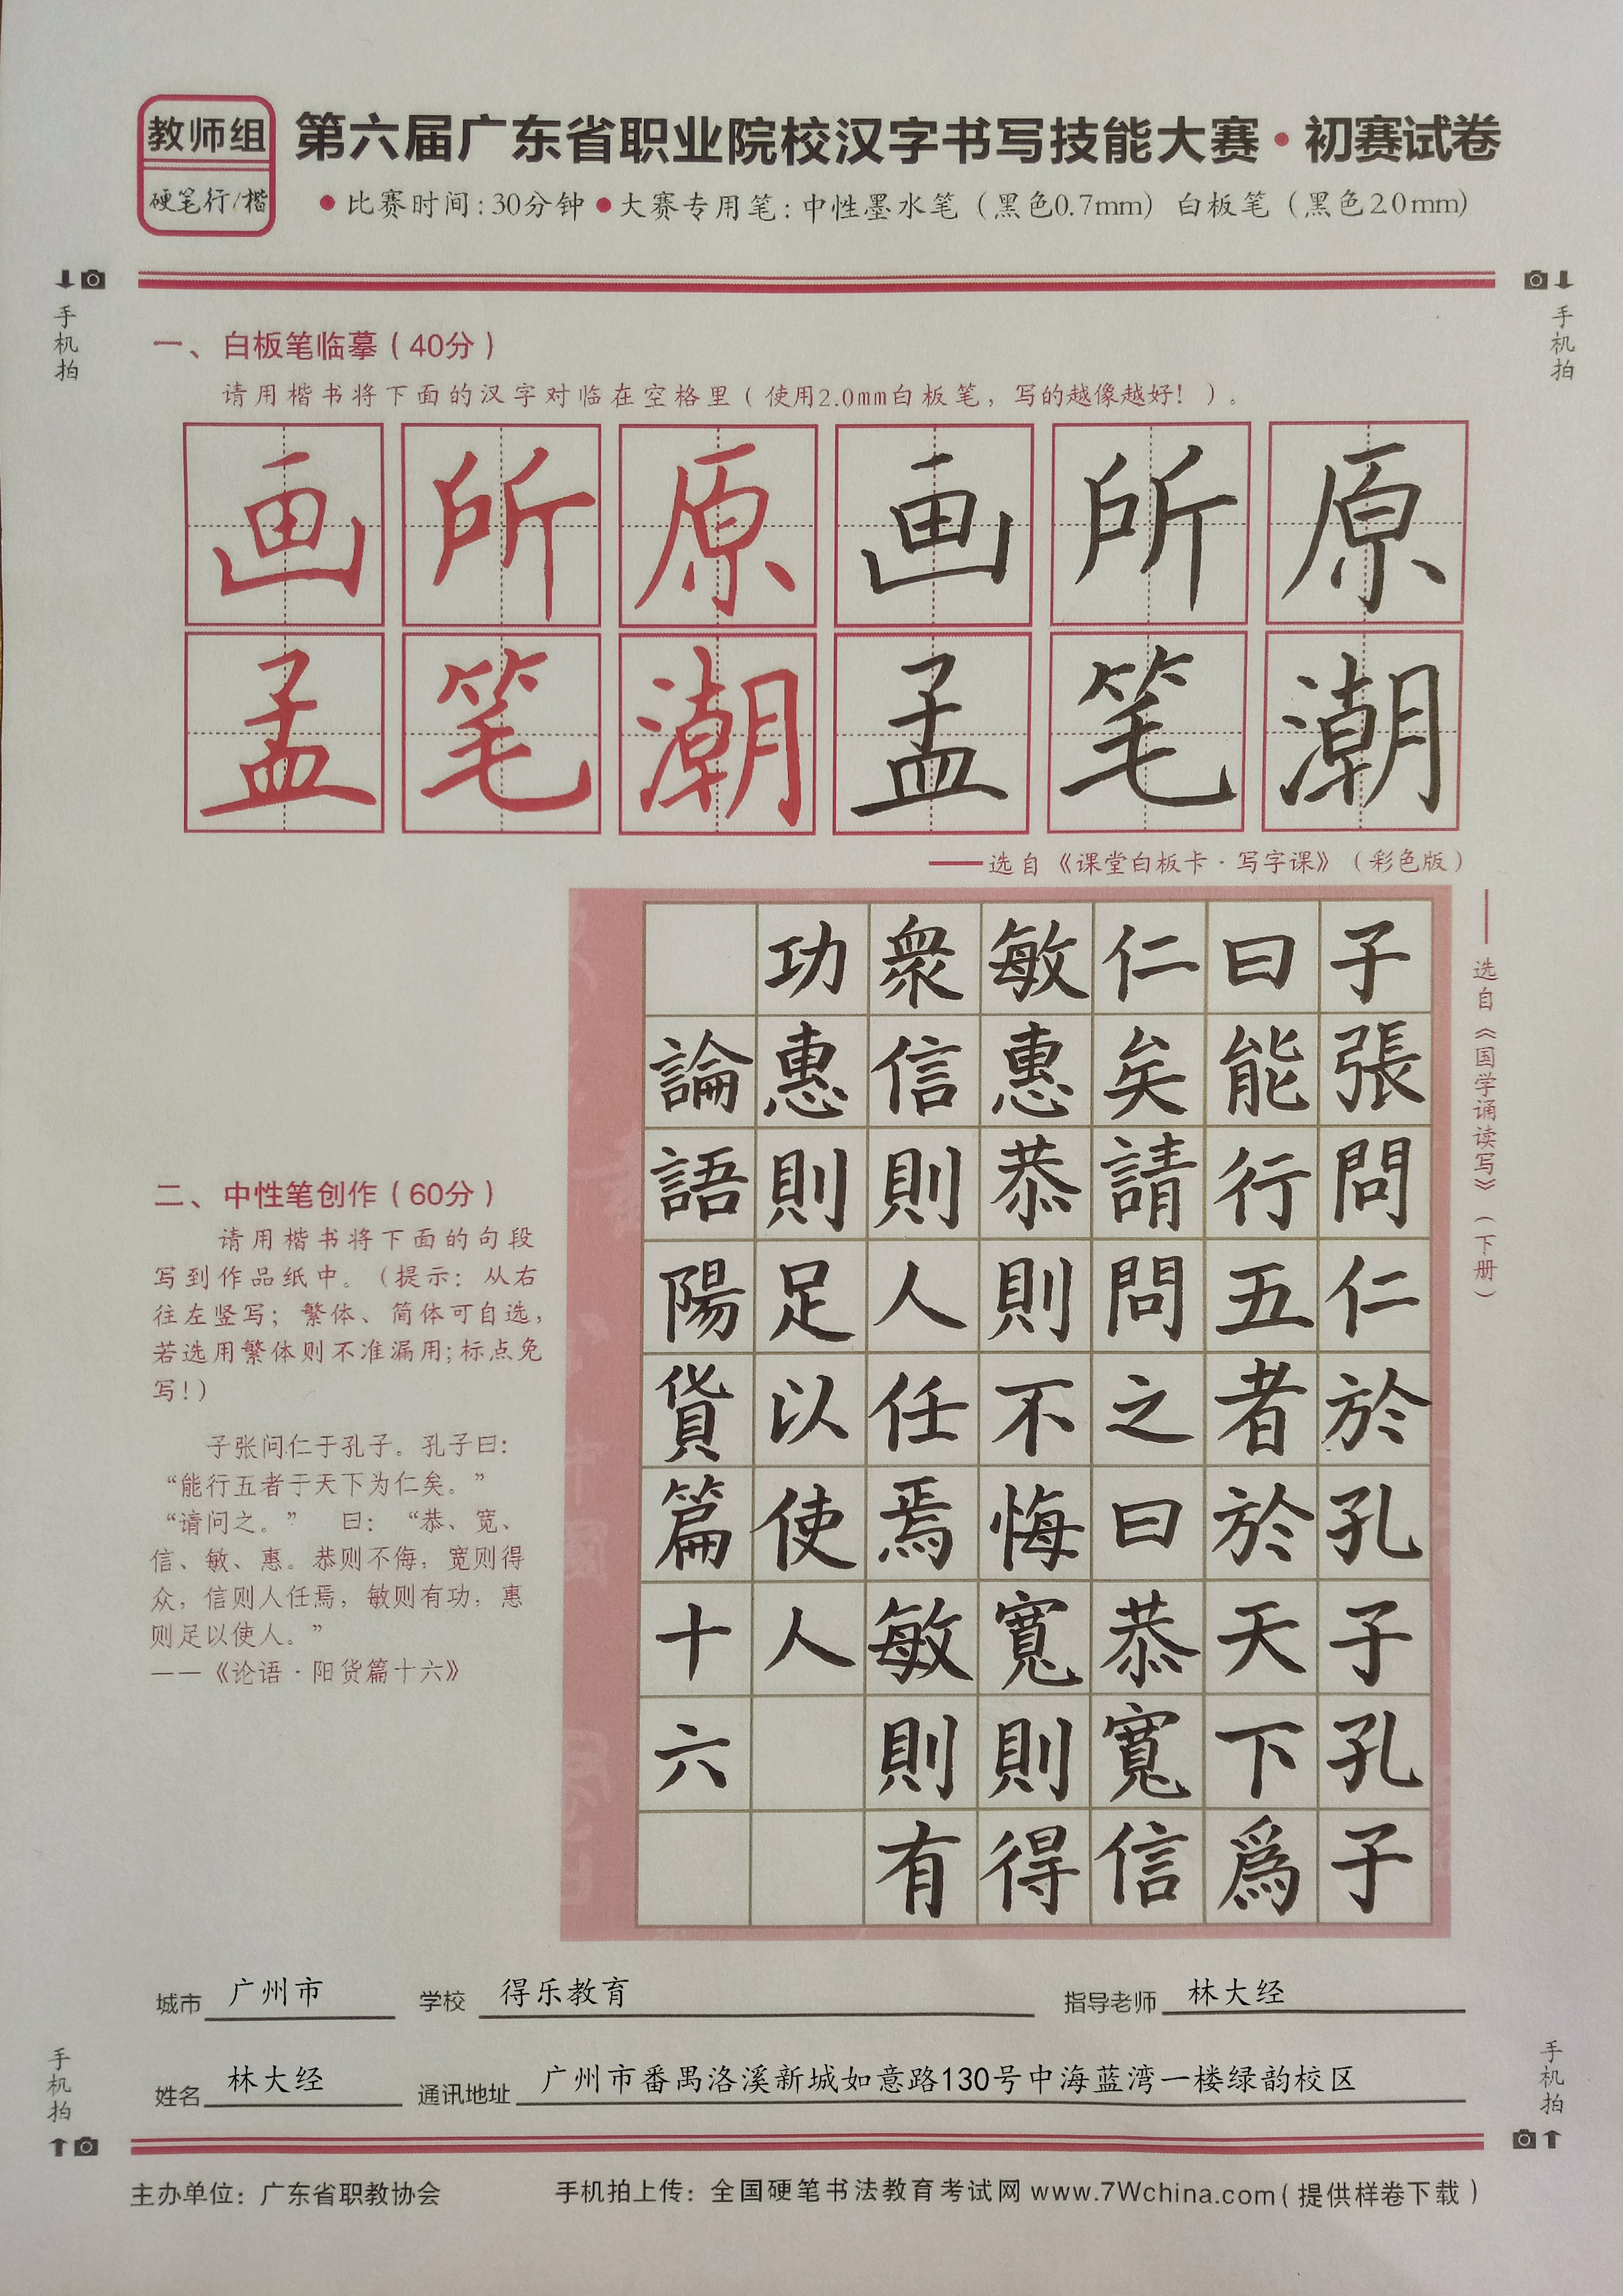 教师组
硬笔行/楷
第六届广东省职业院校汉字书写技能大赛·初赛试卷
●比赛时间:30分钟●大赛专用笔:中性墨水笔（黑色0.7mm）白板笔（黑色2.0mm）
手机拍
手机拍
一、白板笔临摹（40分）
请用楷书将下面的汉字对临在空格里（使用2.0mm白板笔，写的越像越好！）。
画所原画所原
孟笔潮孟笔潮
——选自《课堂白板卡·写字课》（彩色版）
——选自《国学诵读写》（下册）
子張問仁於孔子孔子
曰能行五者於天下爲
仁矣請問之曰恭寬信
敏惠恭則不悔寬則得
衆信則人任焉敏則有
功惠則足以使人
論語陽貨篇十六
二、中性笔创作（60分）
请用楷书将下面的句段
写到作品纸中。（提示：从右
往左竖写；繁体、简体可自选，
若选用繁体则不准漏用；标点免
写！）
子张问仁于孔子。孔子曰：
“能行五者于天下为仁矣。”
“请问之。” 曰：“恭、宽、
信、敏、惠。恭则不侮，宽则得
众，信则人任焉，敏则有功，惠
则足以使人。”
——《论语·阳货篇十六》
城市 广州市 学校 得乐教育 指导老师 林大经
姓名 林大经 通讯地址 广州市番禺洛溪新城如意路130号中海蓝湾一楼绿韵校区
手机拍
手机拍
主办单位：广东省职教协会 手机拍上传：全国硬笔书法教育考试网 www.7Wchina.com（提供样卷下载）